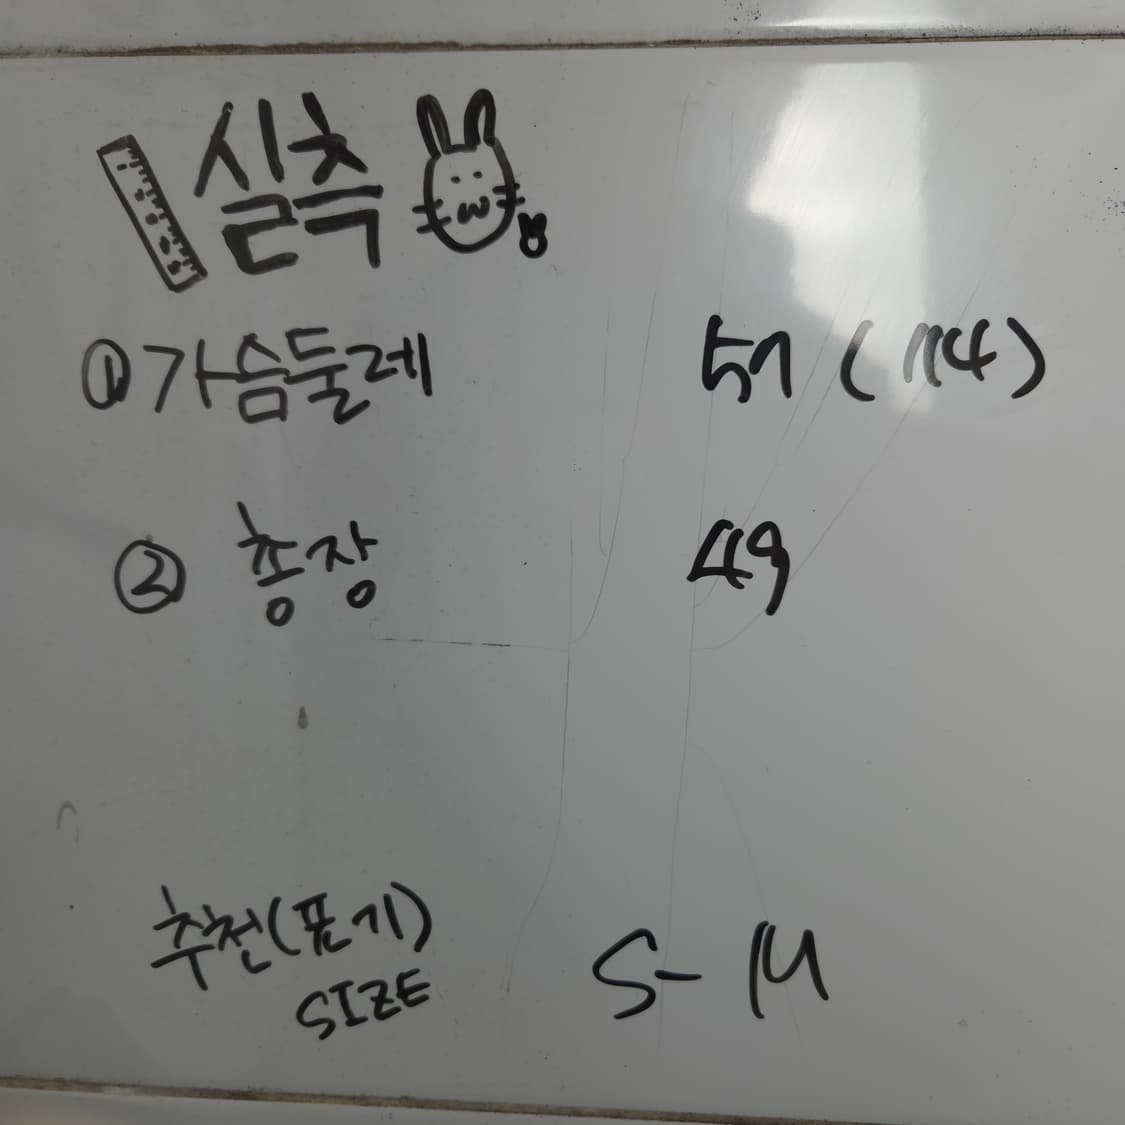 실측
① 가슴둘레 57 (114)
② 총장 49
추천(표기) S-M
SIZE